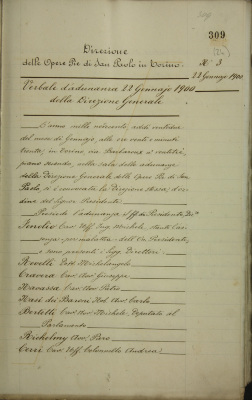 309
Direzione
delle Opere Pie di San Paolo in Torino
N. 3
22 Gennajo 1900
Verbale d'adunanza 22 Gennajo 1900
della Direzione Generale
L'anno mille novecento, addì ventidue
del mese di Gennajo, alle ore venti e minuti
trenta, in Torino, via
piano secondo, nella sala delle adunanze
della Direzione Generale delle Opere Pie di San
Paolo, si è convocata la Direzione stessa, d'or-
dine del Signor Presidente.
Presiede l'adunanza il ff. di Presidente,
Cav. Uff. Ing. Michele, stante l'as-
senza per malattia dell' Presidente,
e sono presenti i Sigg. Direttori:
Rivelli Dott. Michelangelo
Cravero Cav. Avv. Giuseppe
Cav. Avv. Pietro
Nasi dei Baroni Nob. Avv. Carlo
Bertetti Cav. Avv. Michele, Deputato al
Parlamento
Richelmy Avv. Piero
Cerri Cav. Uff. Colonnello Andrea